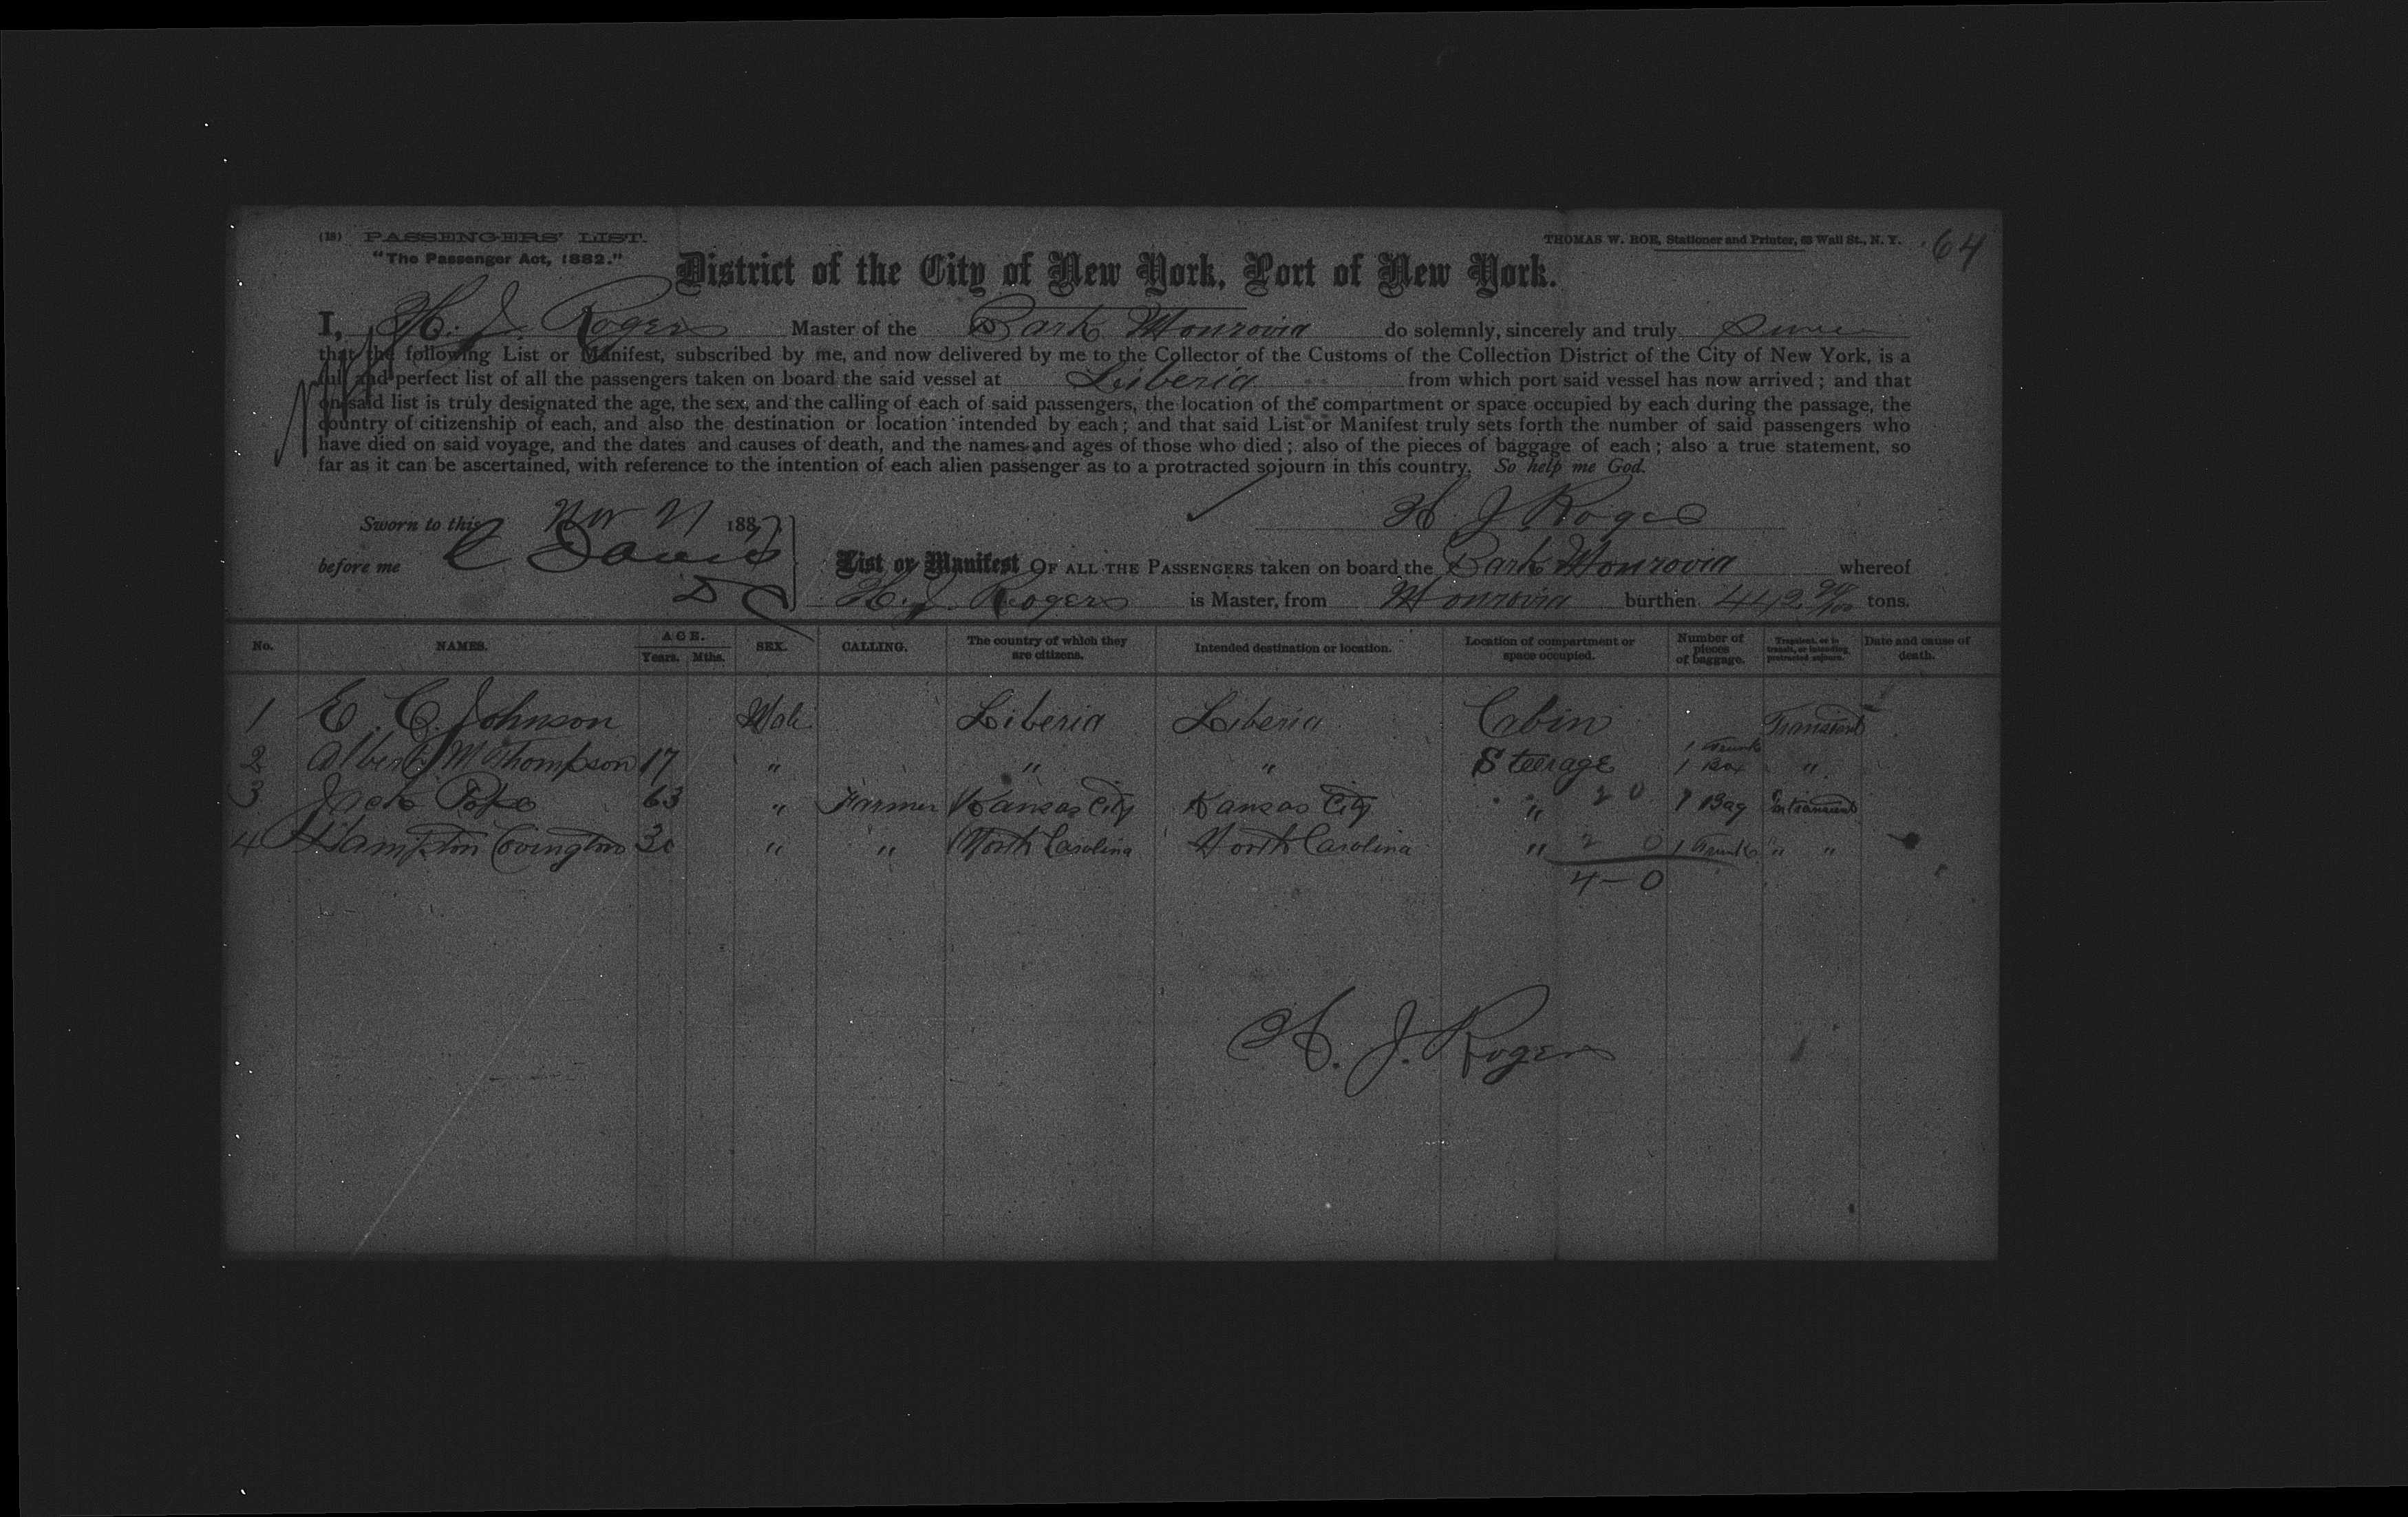 (18) PASSENGERS' LIST.
"The Passenger Act, 1882."
THOMAS W. ROE, Stationer and Printer, 63 Wall St., N. Y.
64
District of the City of New York, Port of New York.
I, H. J. Rogers Master of the Bark Monrovia do solemnly, sincerely and truly
that the following List or Manifest, subscribed by me, and now delivered by me to the Collector of the Customs of the Collection District of the City of New York, is a
full and perfect list of all the passengers taken on board the said vessel at Liberia from which port said vessel has now arrived; and that
on said list is truly designated the age, the sex, and the calling of each of said passengers, the location of the compartment or space occupied by each during the passage, the
country of citizenship of each, and also the destination or location intended by each; and that said List or Manifest truly sets forth the number of said passengers who
have died on said voyage, and the dates and causes of death, and the names and ages of those who died; also of the pieces of baggage of each; also a true statement, so
far as it can be ascertained, with reference to the intention of each alien passenger as to a protracted sojourn in this country. So help me God.
Sworn to this Nov 21 1887
H J Rogers
before me C Davis
D C
List or Manifest OF ALL THE PASSENGERS taken on board the Bark Monrovia whereof
H. J. Rogers is Master, from Monrovia burthen 442 tons.
No. NAMES. AGE. Years. Mths. SEX. CALLING. The country of which they are citizens. Intended destination or location. Location of compartment or space occupied. Number of pieces of baggage. Transient, or in transit, or intending protracted sojourn. Date and cause of death.
1 E. C. Johnson Male Liberia Liberia Cabin Transient
2 Albert M Thompson 17 " " " Steerage 1 Trunk 1 Box "
3 Jack Pope 63 " Farmer Kansas City Kansas City " 2 0 1 Bag
4 Hampton Covington 30 " " North Carolina North Carolina " 2 0 1 Trunk " "
4 – 0
H. J. Rogers